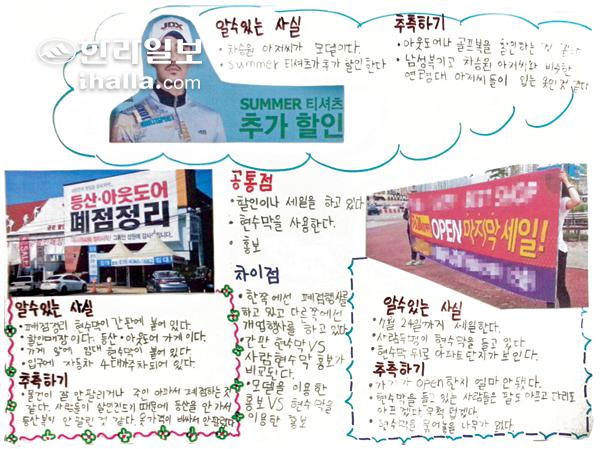 한라일보
ihalla.com
JDX
SUMMER 티셔츠
추가 할인
알수있는 사실
• 차승원 아저씨가 모델이다.
• Summer 티셔츠가 추가 할인한다
추측하기
• 아웃도어나 골프복을 할인하는 것 같다
• 남성복이고 차승원 아저씨와 비슷한
연령대 아저씨들이 입는 옷인것 같다
등산·아웃도어
폐점정리
SALE
임대
알수있는 사실
• 폐점정리 현수막이 간판에 붙어 있다.
• 할인매장이다. 등산·아웃도어 가게이다.
• 가게 앞에 임대 현수막이 붙어 있다.
• 입구에 자동차 4대가 주차되어 있다.
추측하기
• 물건이 잘 안팔리거나 주인 아파서 폐점하는 것
같다. 사람들이 살만진드기 때문에 등산을 안 가서
등산복이 안 팔린 것 같다. 옷가격이 비싸서 안팔린다
공통점
• 할인이나 세일을 하고 있다
• 현수막을 사용한다.
• 홍보
차이점
• 한쪽에선 폐점행사를
하고 있고 다른쪽에선
개업행사를 하고 있다.
• 간판 현수막 VS
사람현수막 홍보가
비교된다.
• 모델을 이용한
홍보 VS 현수막을
이용한 홍보
OPEN 마지막 세일!
알수있는 사실
• 7월 24일까지 세일한다.
• 사람두명이 현수막을 들고 있다
• 현수막 뒤로 아파트 단지가 보인다.
추측하기
• 가게가 open한지 얼마 안됐다.
• 현수막을 들고 있는 사람들은 팔도 아프고 다리도
아프겠다. 무척 덥겠다.
• 현수막을 묶어놓을 나무가 없다.